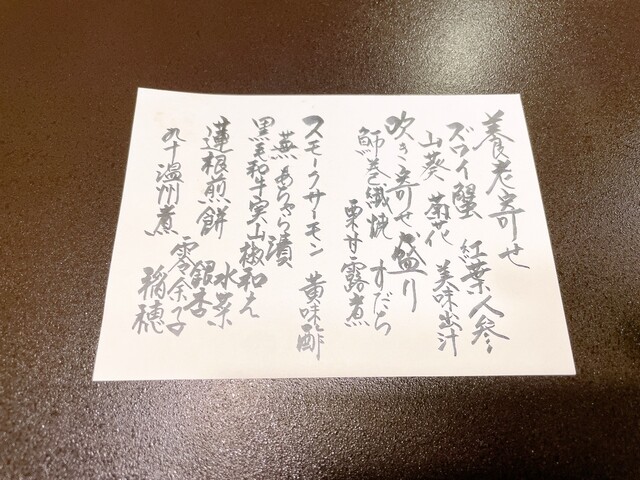 養老寄せ
ズワイ蟹 紅葉人参
山葵 菊花 美味出汁
吹き寄せ盛り
鰤巻繊焼 すだち
栗甘露煮
スモークサーモン 黄味酢
蕪あちゃら漬
黒毛和牛実山椒和え
蓮根煎餅 水菜
銀杏
零余子
丸十温州煮 稲穂